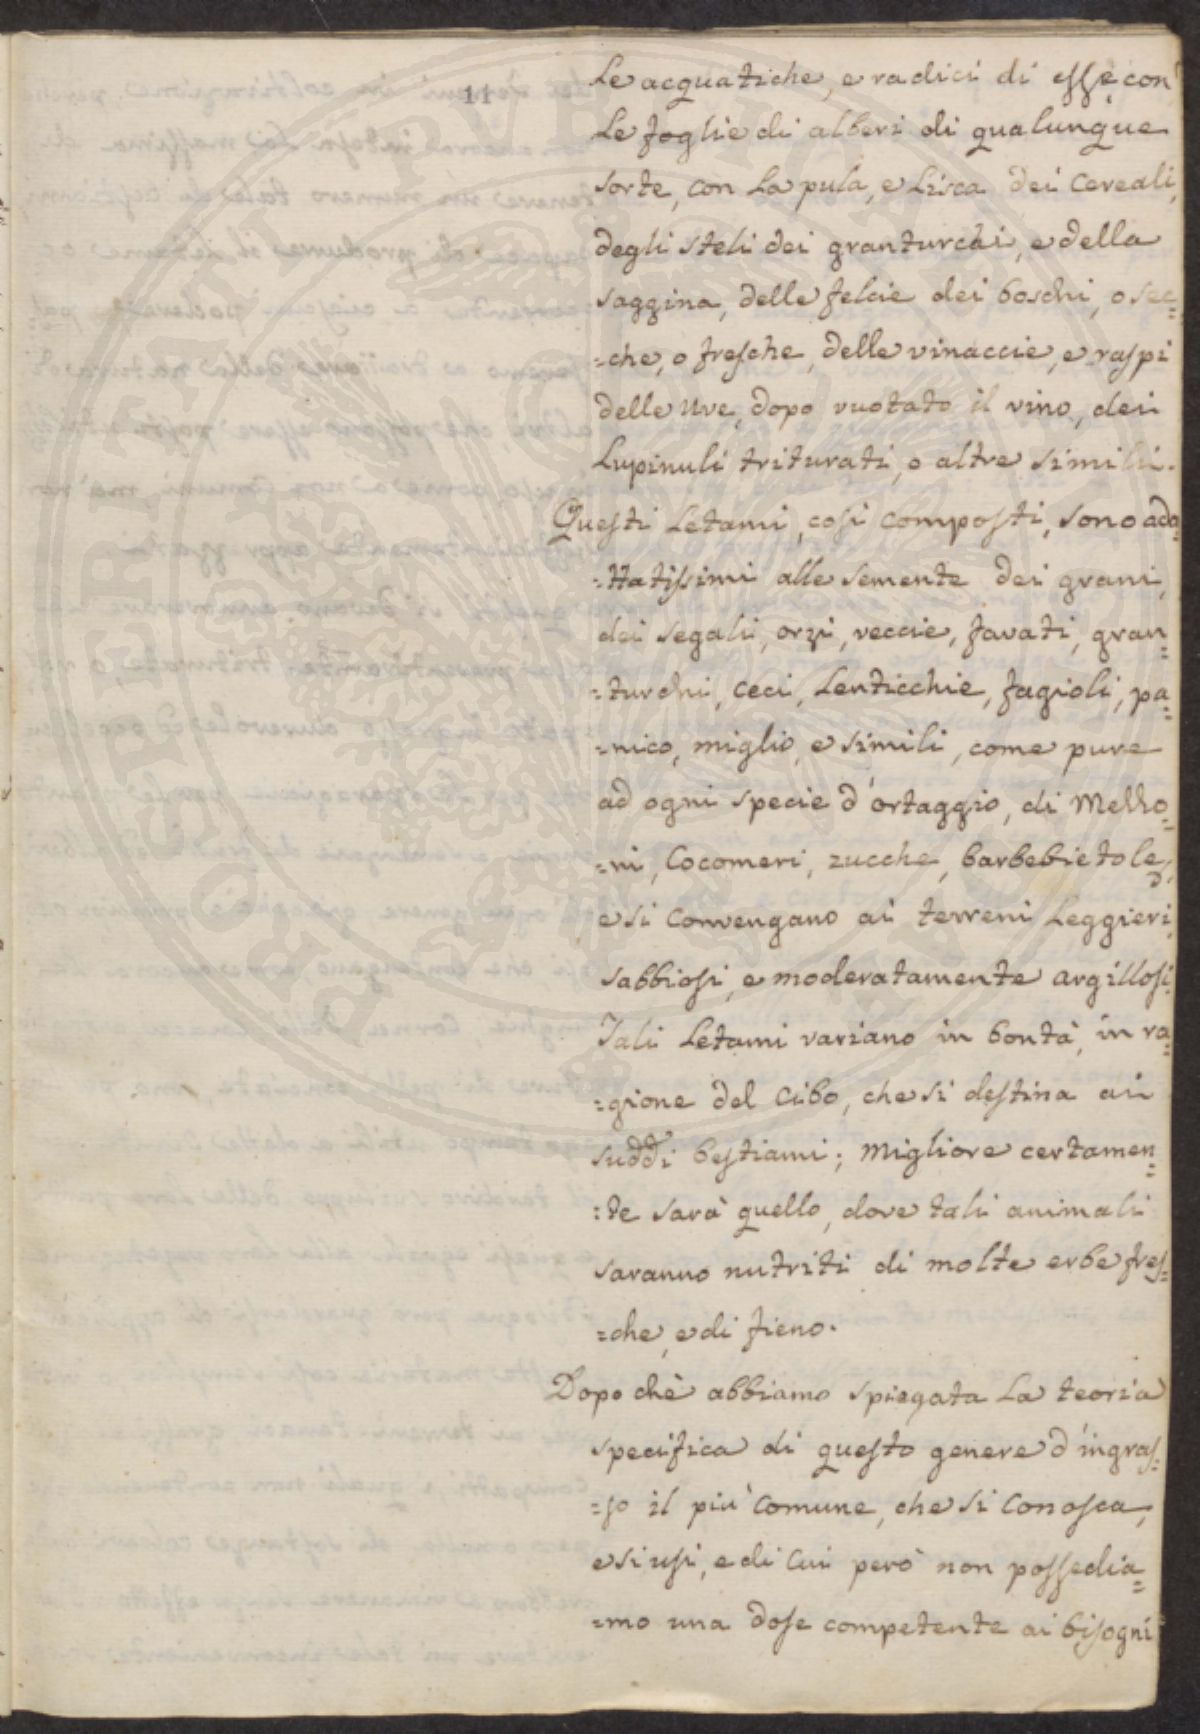 11
le acquatiche, e radici di esse con
le foglie di alberi di qualunque
sorte, con la pula, e lisca dei cereali,
degli steli dei granturchi, e della
saggina, delle felcie dei boschi, o sec=
=che, o fresche, delle vinaccie, e raspi
delle uve, dopo vuotato il vino, dei
Lupinuli triturati, o altre simili.
Questi Letami, così composti, sono ada=
=ttatissimi alle semente dei grani,
dei segali, orzi, veccie, favati, gran=
=turchi, ceci, Lenticchie, fagioli, pa=
=nico, miglio, e simili, come pure
ad ogni specie d'ortaggio, di Mello=
=ni, Cocomeri, zucche, barbebietole,
e si convengano ai terreni Leggieri,
sabbiosi, e moderatamente argillosi.
Tali Letami variano in bontà, in ra=
=gione del Cibo, che si destina ai
sudd̃i bestiami; Migliore certamen=
=te sarà quello, dove tali animali
saranno nutriti di molte erbe fres=
=che, e di fieno.
Dopo chè abbiamo spiegata La teoria
specifica di questo genere d'ingras=
=so il più comune, che si conosca,
e si usi, e di cui però non possedia=
=mo una dose competente ai bisogni